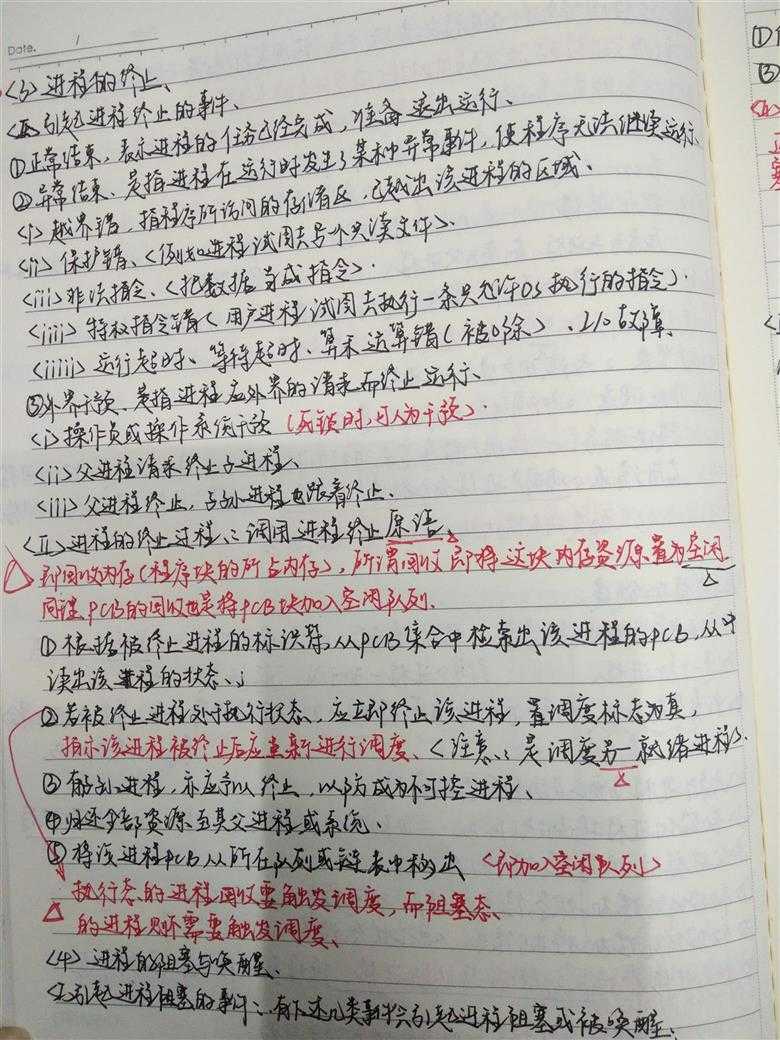 Date.
<3> 进程的终止、
<I> 引起进程终止的事件、
①正常结束，表示进程的任务已经完成，准备退出运行、
②异常结束、是指进程在运行时发生了某种异常事件，使程序无法继续运行
<i> 越界错，指程序所访问的存储区，已越出该进程的区域、
<ii> 保护错、<例如进程试图去写一个只读文件>.
<iii> 非法指令、<把数据当成指令>.
<iiii> 特权指令错（用户进程试图去执行一条只允许OS执行的指令）.
<iiiii> 运行超时、等待超时、算术运算错（被0除）、I/O故障、
③外界干预、是指进程应外界的请求而终止运行、
<i>操作员或操作系统干预（死锁时，可人为干预）.
<ii>父进程请求终止子进程、
<iii>父进程终止，子孙进程也跟着终止.
<II>进程的终止过程：调用进程终止原语、
即回收内存（程序块的所占内存），所谓回收即将这块内存资源置为空闲
同理、PCB的回收也是将PCB块加入空闲队列.
①根据被终止进程的标识符，从PCB集合中检索出该进程的PCB，从中
读出该进程的状态、；
②若被终止进程处于执行状态，应立即终止该进程，置调度标志为真，
指示该进程被终止后应重新进行调度、<注意：是调度另一就绪进程>.
③有子孙进程，亦应予以终止，以防成为不可控进程、
④归还全部资源至其父进程或系统、
⑤将该进程PCB从所在队列或链表中移出 <即加入空闲队列>
执行态的进程回收要触发调度，而阻塞态、
的进程则不需要触发调度、
<4> 进程的阻塞与唤醒、
<I>引起进程阻塞的事件：有下述几类事件会引起进程阻塞或被唤醒：
①
③